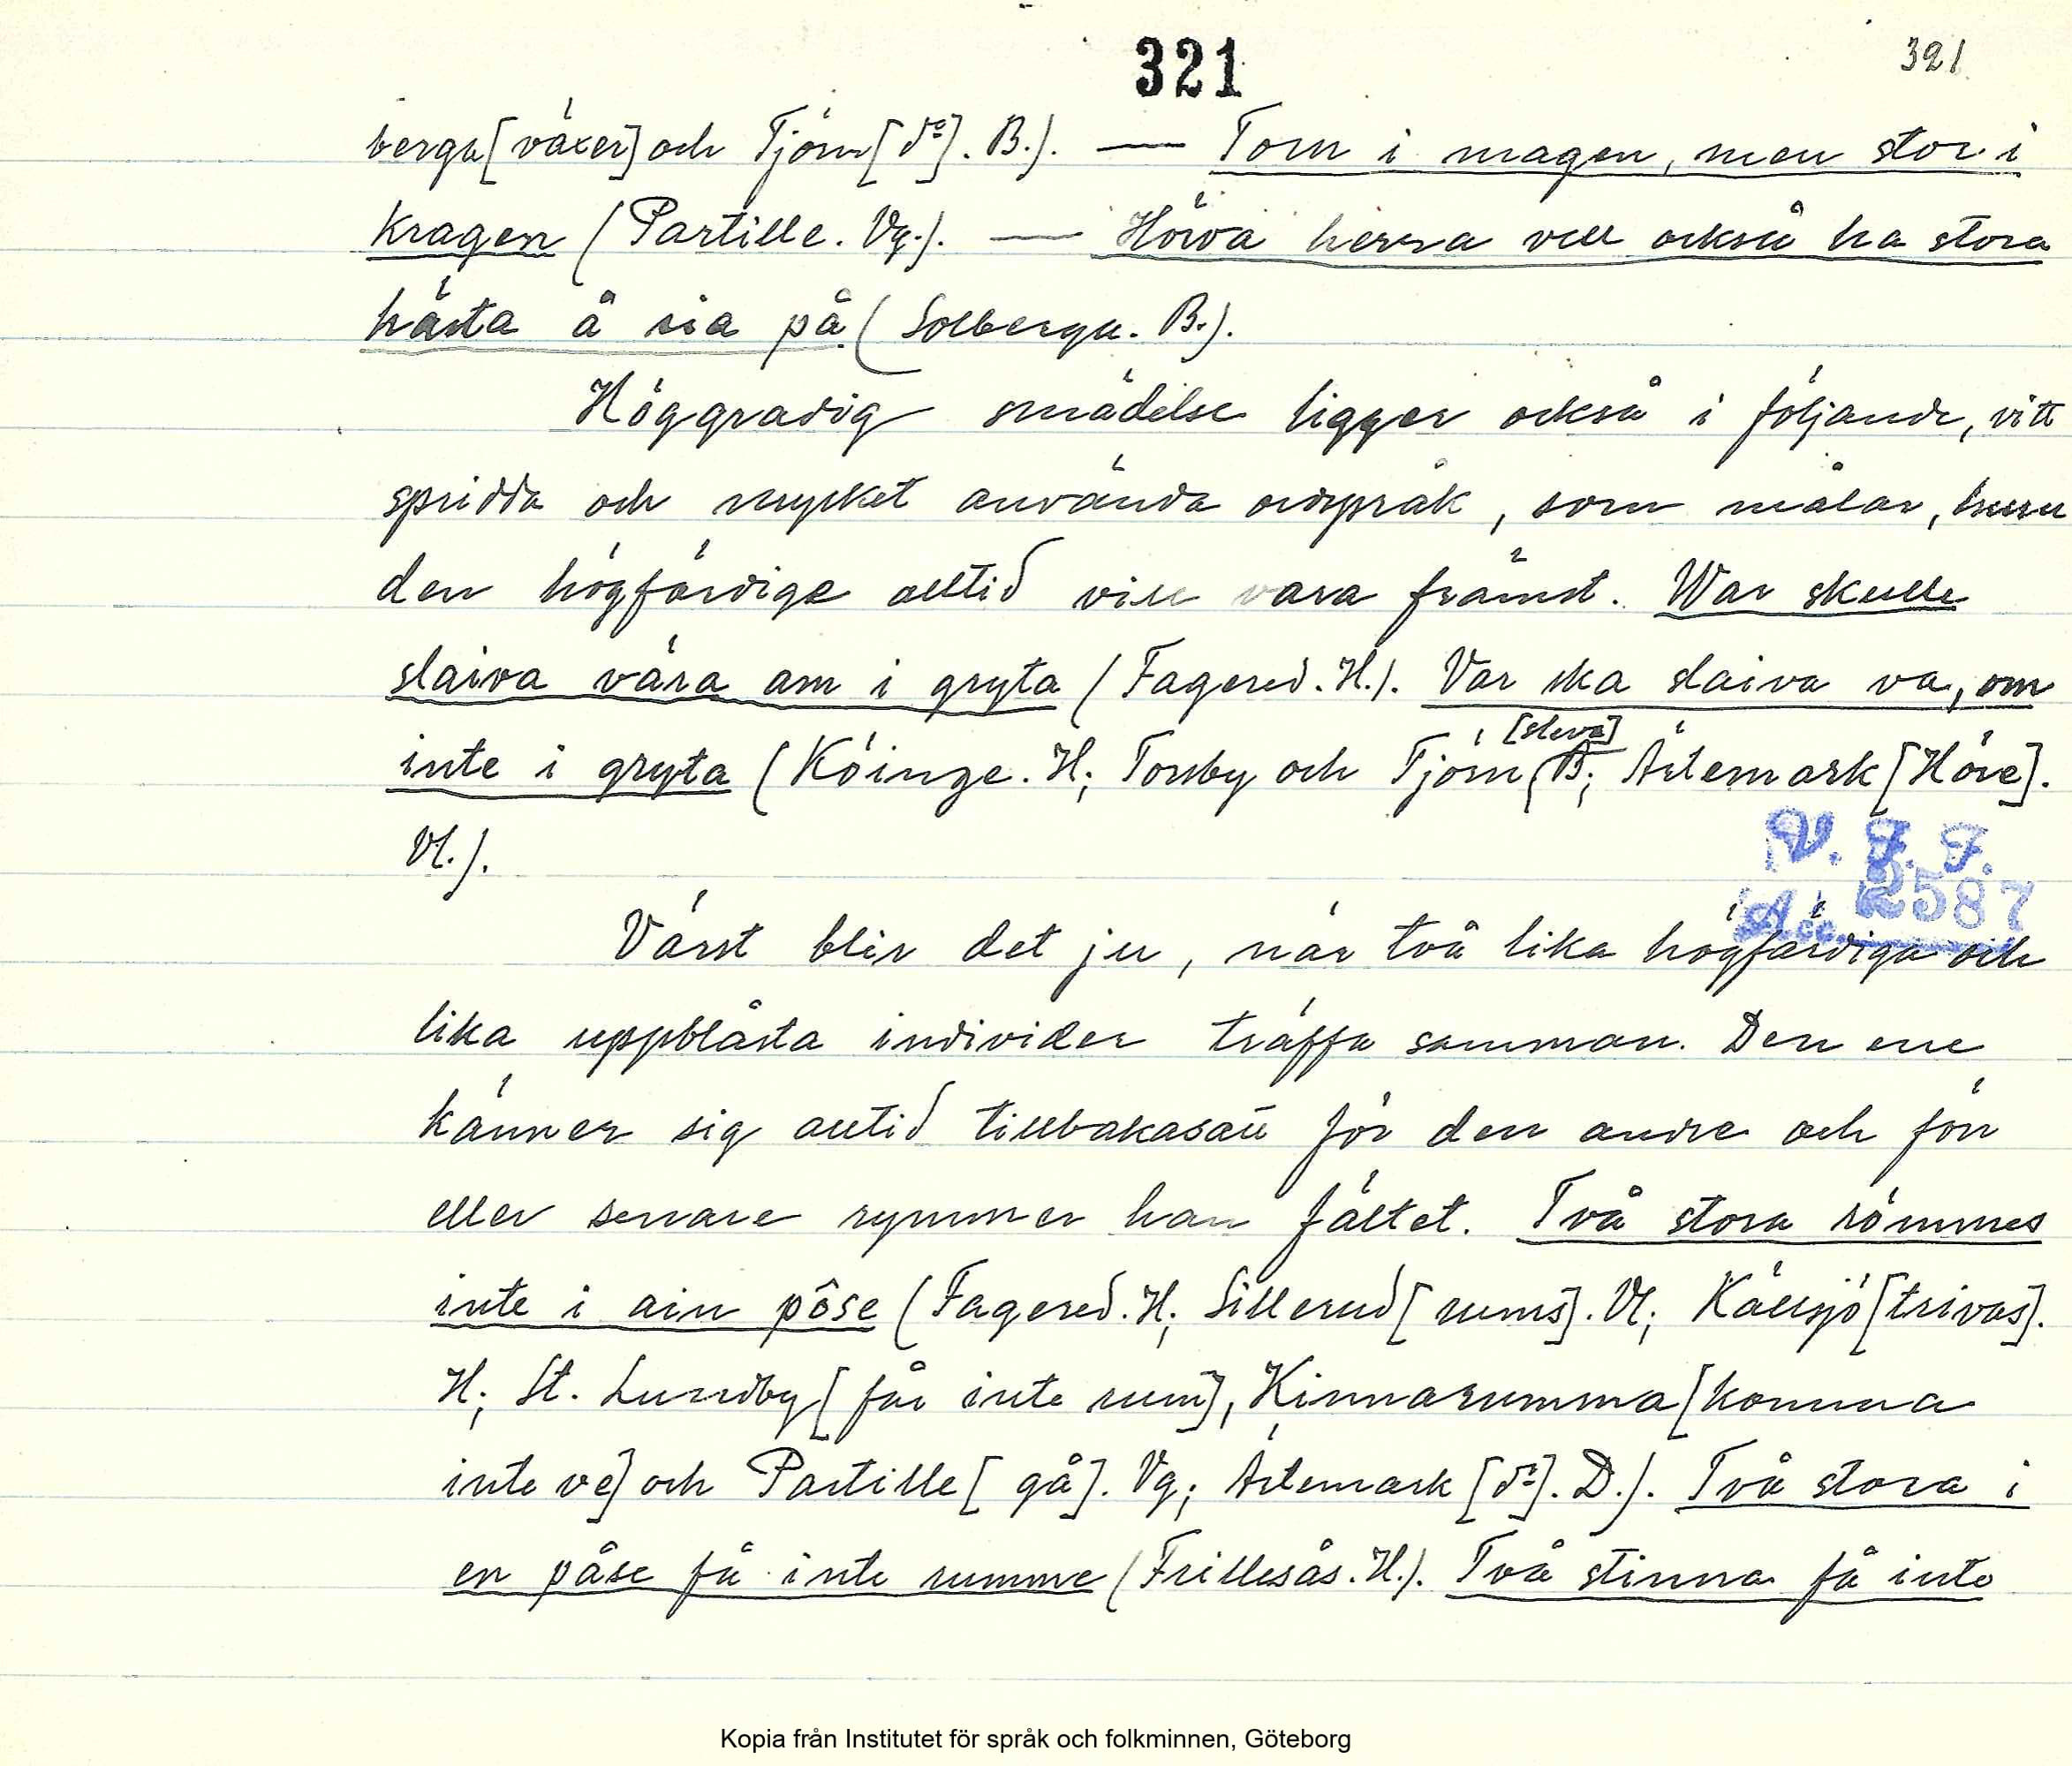 321
321
berga [växer] och Tjörn [do]. B.). — Tom i magen, men stor i
kragen (Partille. Vg.). — Höwa herra vell också ha stora
hästa å sia på (Solberga. B.).
Höggradig smädelse ligger också i följande, vitt
spridda och mycket använda ordspråk, som målar, huru
den högfärdige alltid vill vara främst. War skulle
slaiva vära am i gryta (Fagered. H.). Var ska slaiva va, om
inte i gryta (Köinge. H; Torsby och Tjörn [sleva] B; Ärtemark [Höre].
Vl.).
V. F. F.
Acc. 2587
Värst blir det ju, när två lika högfärdiga och
lika uppblåsta individer träffa samman. Den ene
känner sig alltid tillbakasatt för den andre och förr
eller senare rymmer han fältet. Två stora römmes
inte i ain pôse (Fagered. H; Sillerud [rums]. Vl; Källsjö [trivas].
H; St. Lundby [får inte rum], Kinnarumma [komma
inte ve] och Partille [gå]. Vg; Ärtemark [do]. D.). Två stora i
en påse få inte rumme (Frillesås. H.). Två stinna få inte
Kopia från Institutet för språk och folkminnen, Göteborg